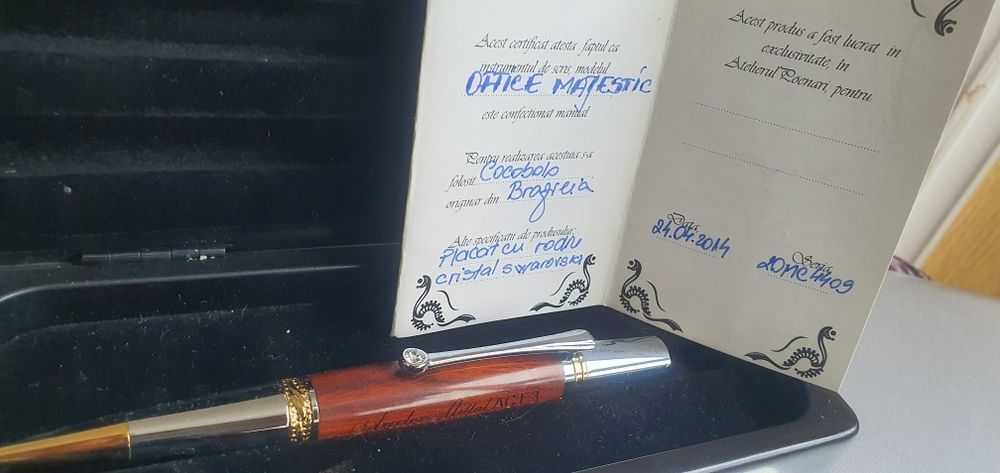 Acest certificat atesta faptul ca
instrumentul de scris, modelul
OFFICE MAJESTIC
este confectionat manual
Pentru realizarea acestuia s-a
folosit Cocobolo
originar din
Alte specificatii ale produsului:
Placat cu rodiu
cristal swarovski
Acest produs a fost lucrat in
exclusivitate, in
Atelierul Poenari, pentru
Data
24.04.2014
Seria
ArcelorMittal